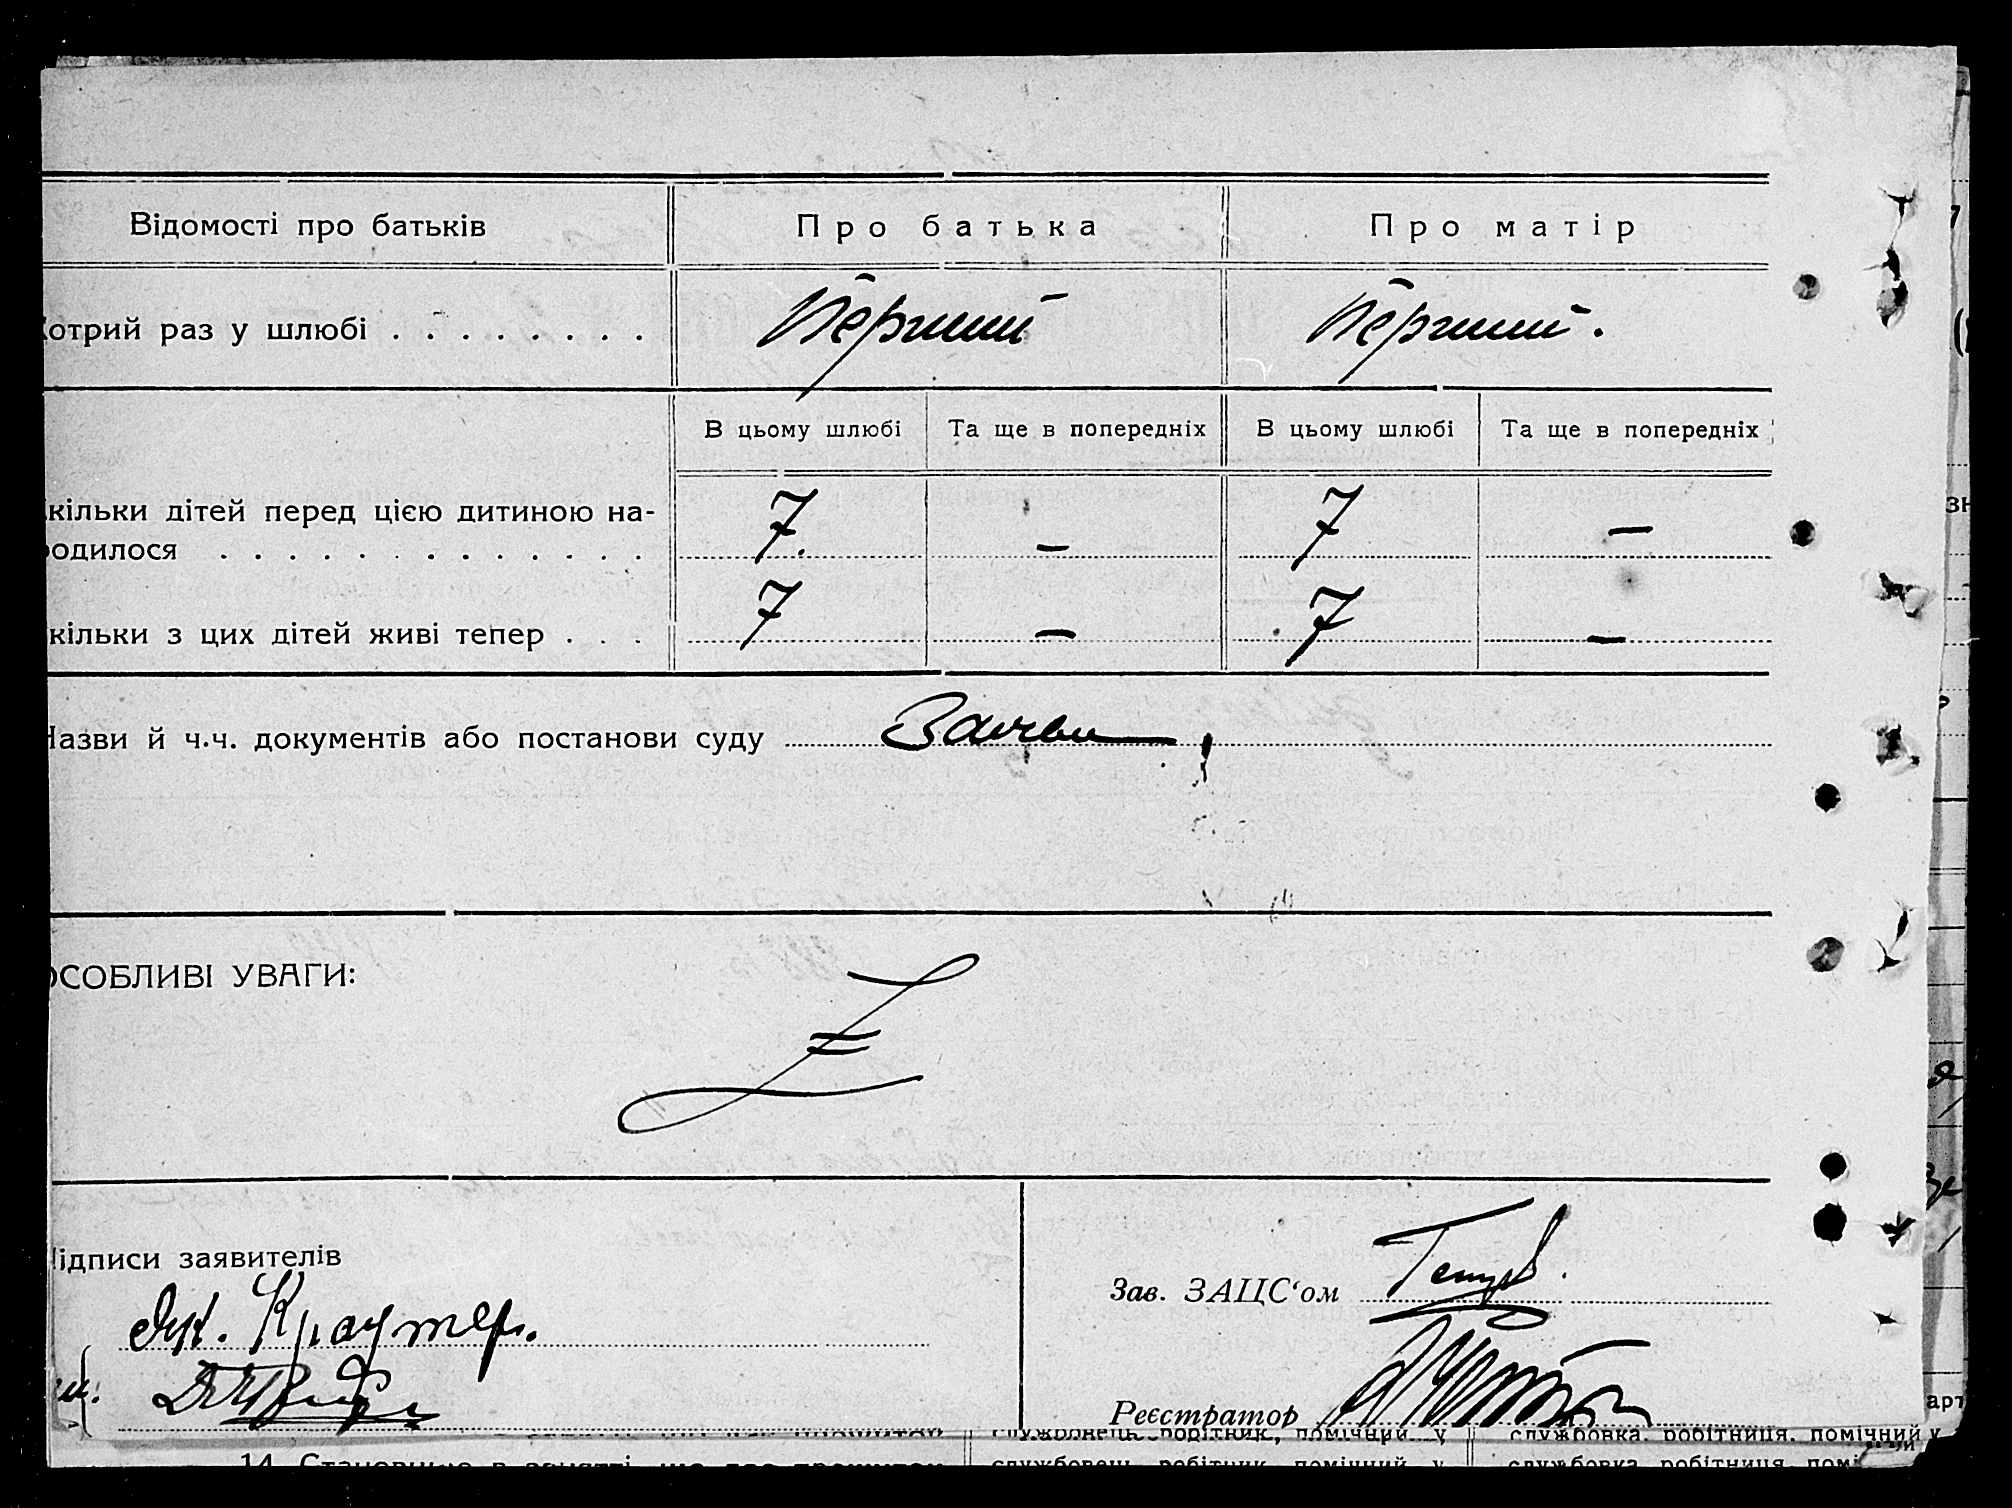 Відомості про батьків Про батька Про матір
Котрий раз у шлюбі . . . . . . . . Перший Перший.
В цьому шлюбі Та ще в попередніх В цьому шлюбі Та ще в попередніх
кільки дітей перед цією дитиною на-
родилося . . . . . . . . . . . . . 7. — 7 —
кільки з цих дітей живі тепер . . . 7 — 7 —
Назви й ч.ч. документів або постанови суду Заява
ОСОБЛИВІ УВАГИ:
Підписи заявителів
Зав. ЗАЦС‘ом
Як. Краутер.
Реєстратор
службовець, робітник, помічний у службовка, робітниця, помічний у
14. Становище в занятті, що дає прожиток службовець, робітник, помічний у службовка, робітниця, помі